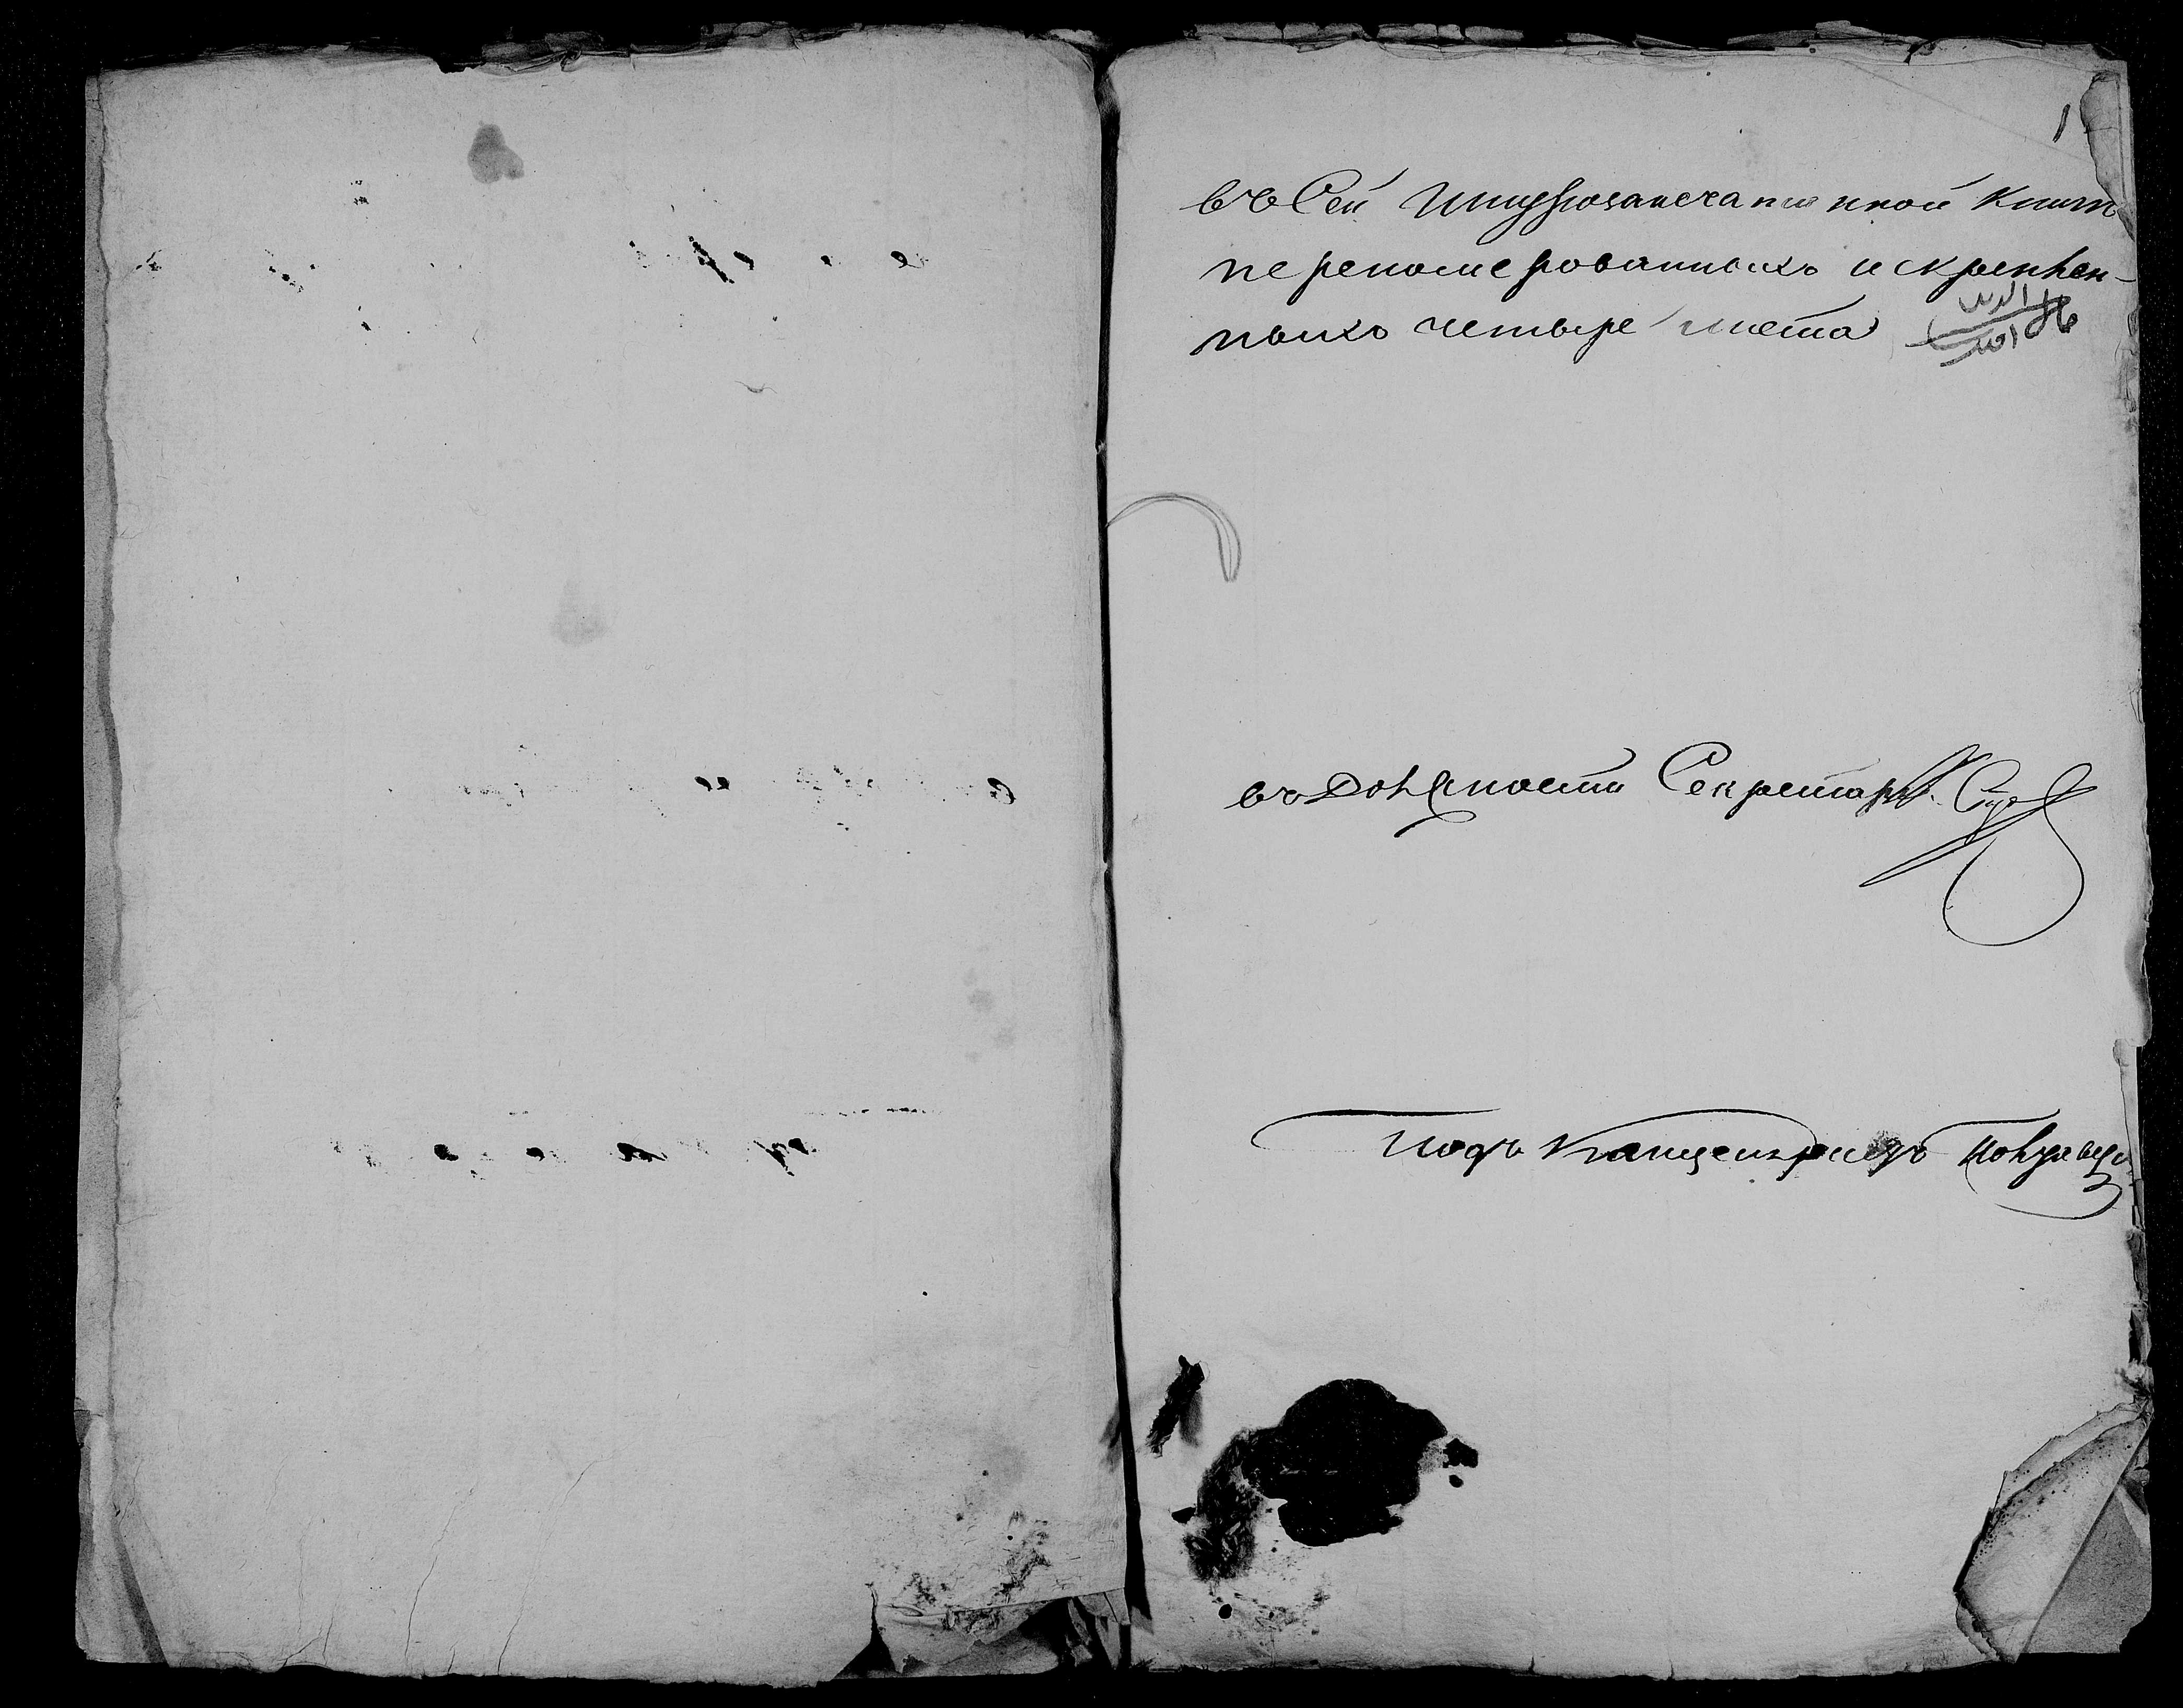 1
въ Сей шнурозапечатанной Книги
переномерованныхъ и скрепѣен-
ныхъ четыре листа
въ Должности Секретаря
Подъ Канцеляристъ